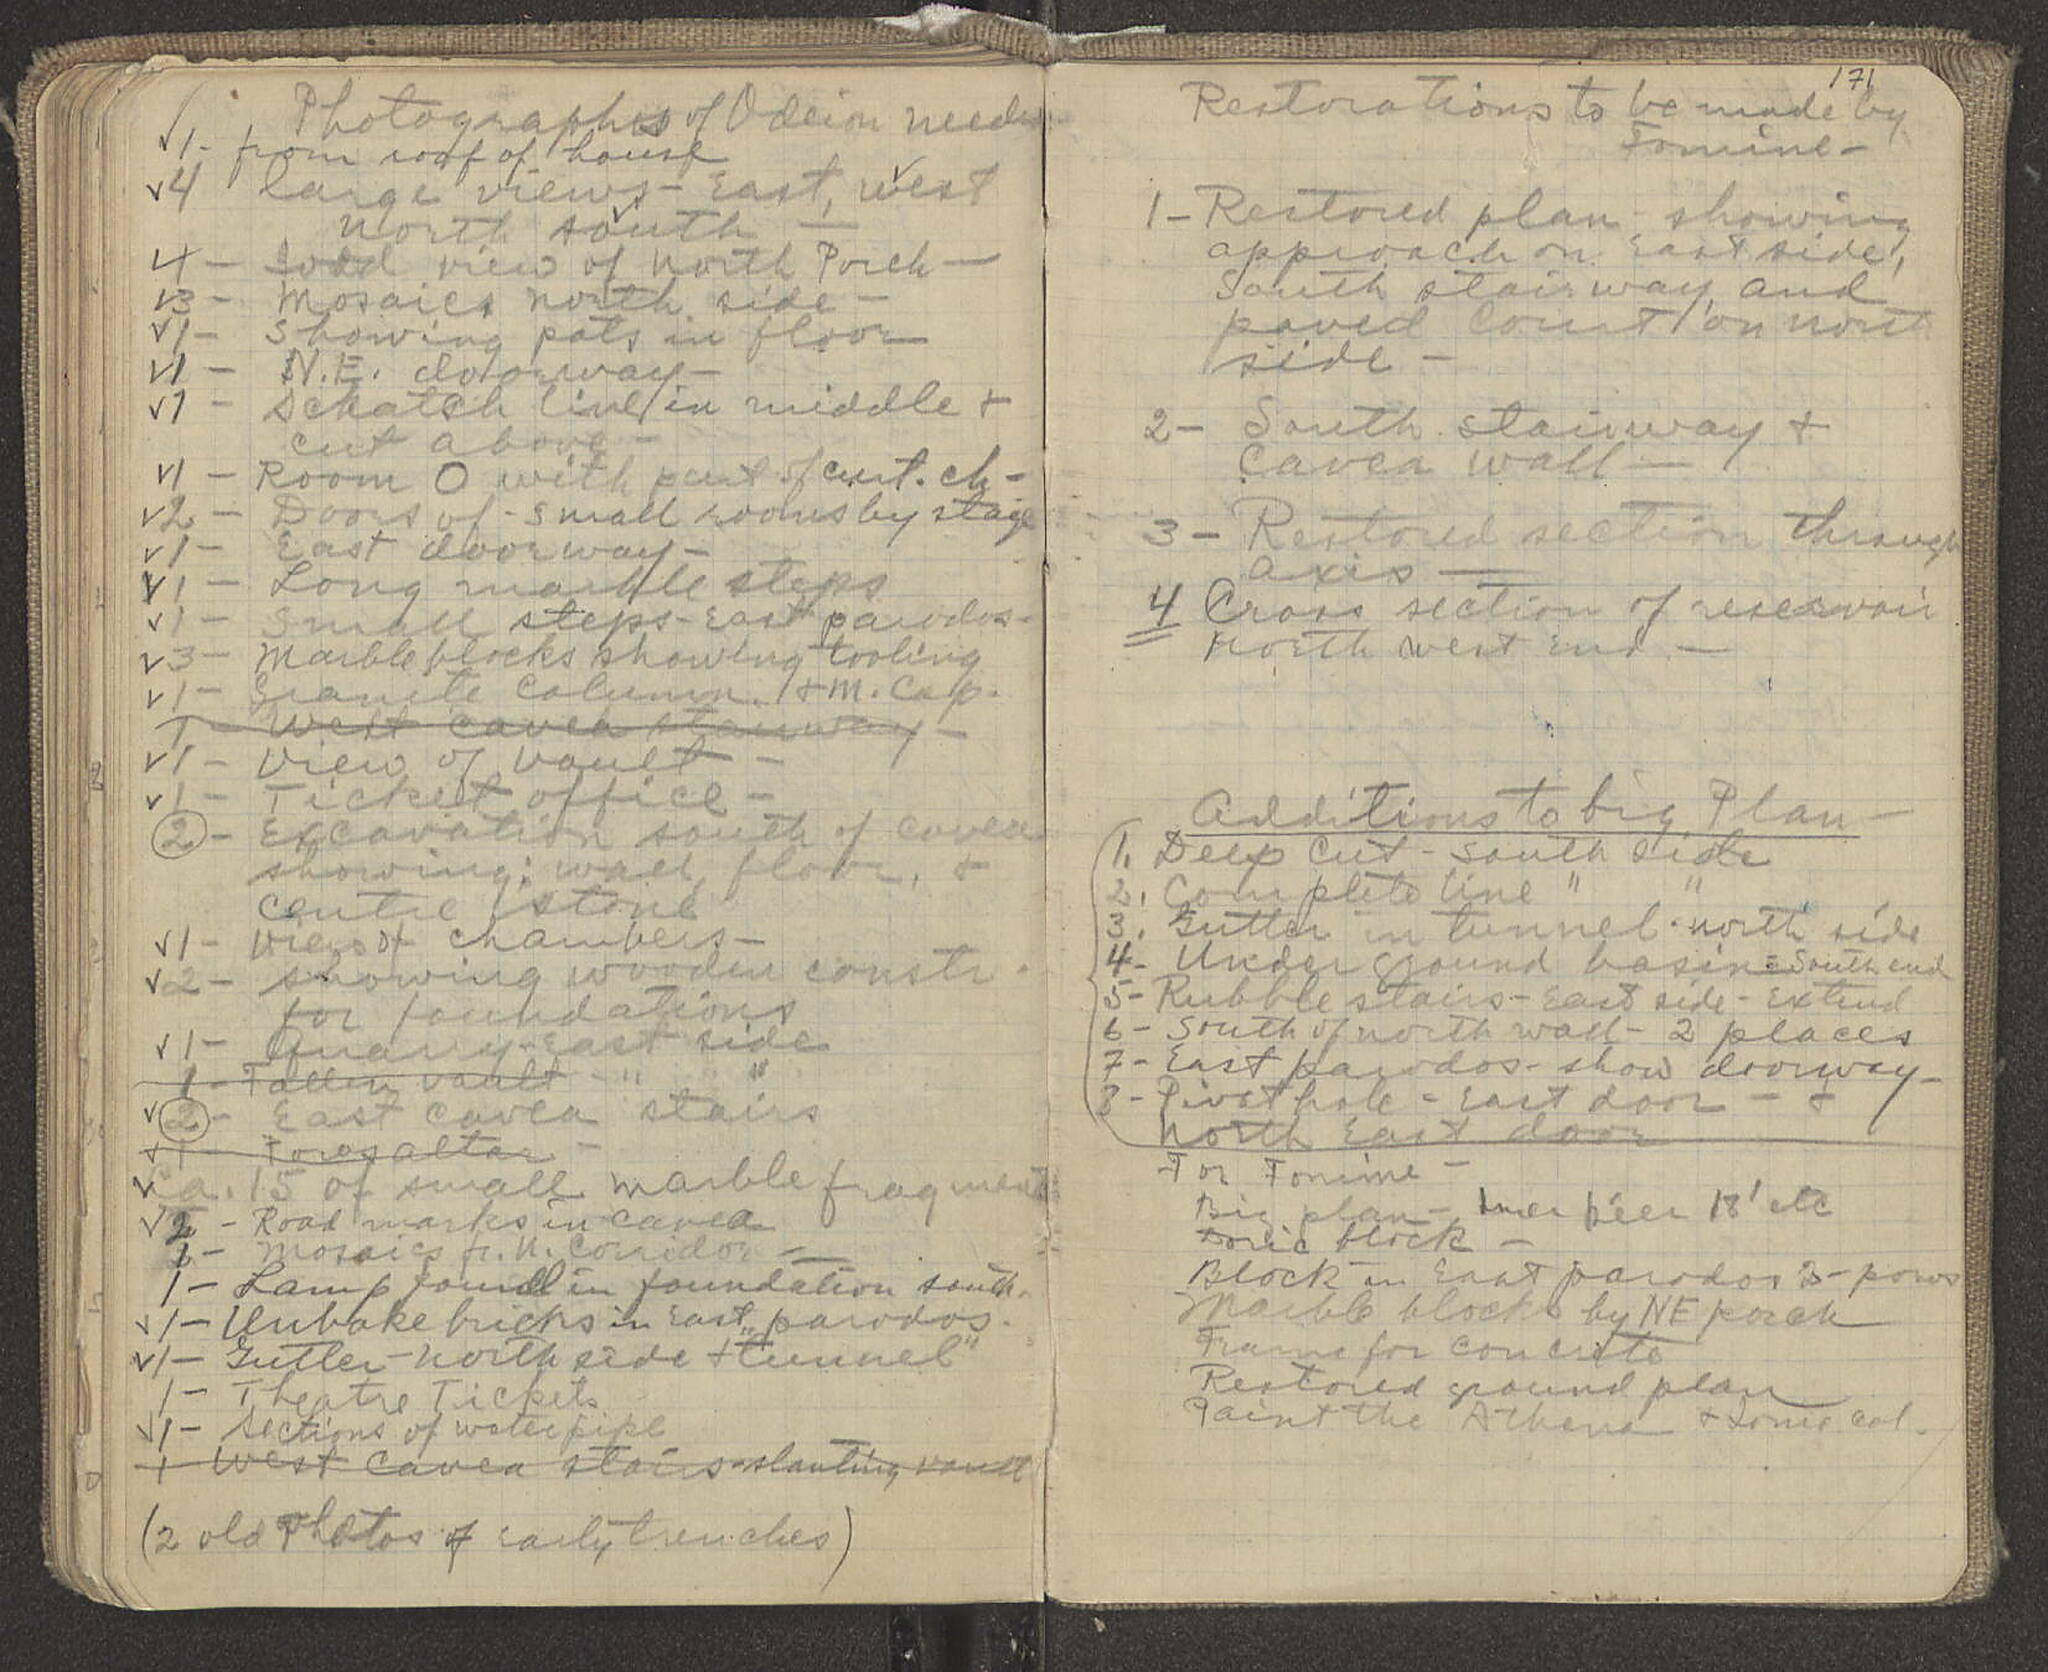 Photographs of Odeion needed
√1- from roof of house
√4 large views - East, West
North South —
4 - Good view of North Porch —
√3 - Mosaics north side -
√1 - Showing pots in floor
√1 - N.E. doorway -
√1 - Schatch line in middle +
cut above -
√1 - Room O with part of curt. ch -
√2 - Doors of small rooms by stage
√1 - East doorway -
√1 - Long marble steps
√1 - Small steps - East parodos -
√3 - Marble blocks showing tooling
√1 - Granite Column, 1 + M. Cap.
1 - West Cavea stairway -
√1 - View of vault -
√1 - Ticket office -
2 - Excavation south of cavea
showing: wall, floor, +
centre stone
√1 - View of chambers -
√2 - showing wooden constr.
for foundations
√1 - Quarry - East side
1 - Fallen vault - " "
√2 - East cavea stairs
√1 - altar -
√ca. 15 of small marble fragments
√2 - Road marks in cavea
3 - Mosaics fr. N. Corridor -
1 - Lamp found in foundation south.
√1 - Unbake bricks in East parodos.
√1 - Gutter - north side + "tunnel"
1 - Theatre Tickets
√1 - Sections of waterpipe
1 West Cavea stairs - slanting vault
(2 old Photos of early trenches)
171
Restorations to be made by
Fomine -
1 - Restored plan - showing
approach on East side,
South stairway, and
paved Court on north
side -
2 - South stairway +
Cavea wall —
3 - Restored section through
axis —
4 Cross section of reservoir
North West End. —
Additions to big Plan -
1. Deep Cut - South Side
2. Complete line " "
3. Gutter in tunnel - north side
4 - Underground basin = South end
5 - Rubble stairs - East side - extend
6 - South of north wall - 2 places
7 - East parodos - show doorway -
8 - Pivot hole - East door - +
North East door
For Fomine -
Big plan - Inner pier 18' etc
Doric block -
Block in East parodos
Marble blocks by NE porch
Frame for concrete
Restored ground plan
Paint the Athena + Ionic col.